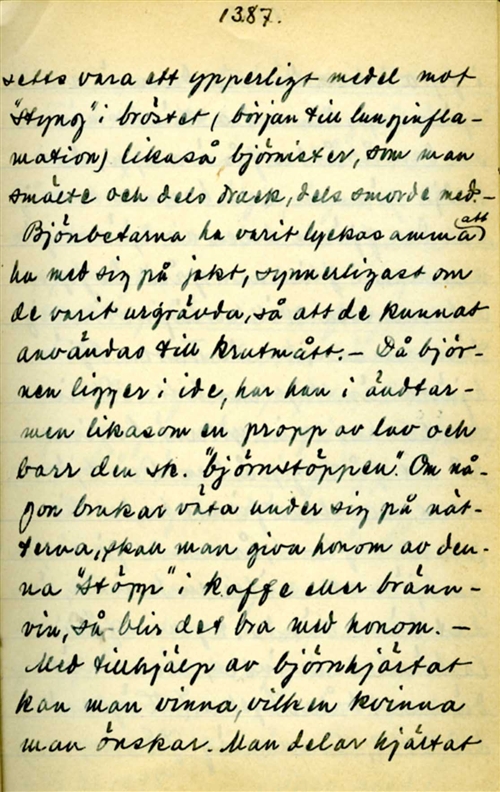 1387.
vara ett ypperligt medel mot
"styng" i bröstet (början till lunginfla-
mation) likaså björnister, som man
smälte och dels drack, dels smorde med. -
Björnbetarna ha varit lyckosamma att
ha med sig på jakt, synnerligast om
de varit urgrävda, så att de kunnat
användas till krutmått. - Då björ-
nen ligger i ide, har han i ändtar-
men likasom en propp av lav och
barr den sk. "björnstöppen". Om nå-
gon brukar väta under sig på nät-
terna, skall man giva honom av den-
na "stöpp" i kaffe eller bränn-
vin, så blir det bra med honom. -
Med tillhjälp av björnhjärtat
kan man vinna, vilken kvinna
man önskar. Man delar hjärtat